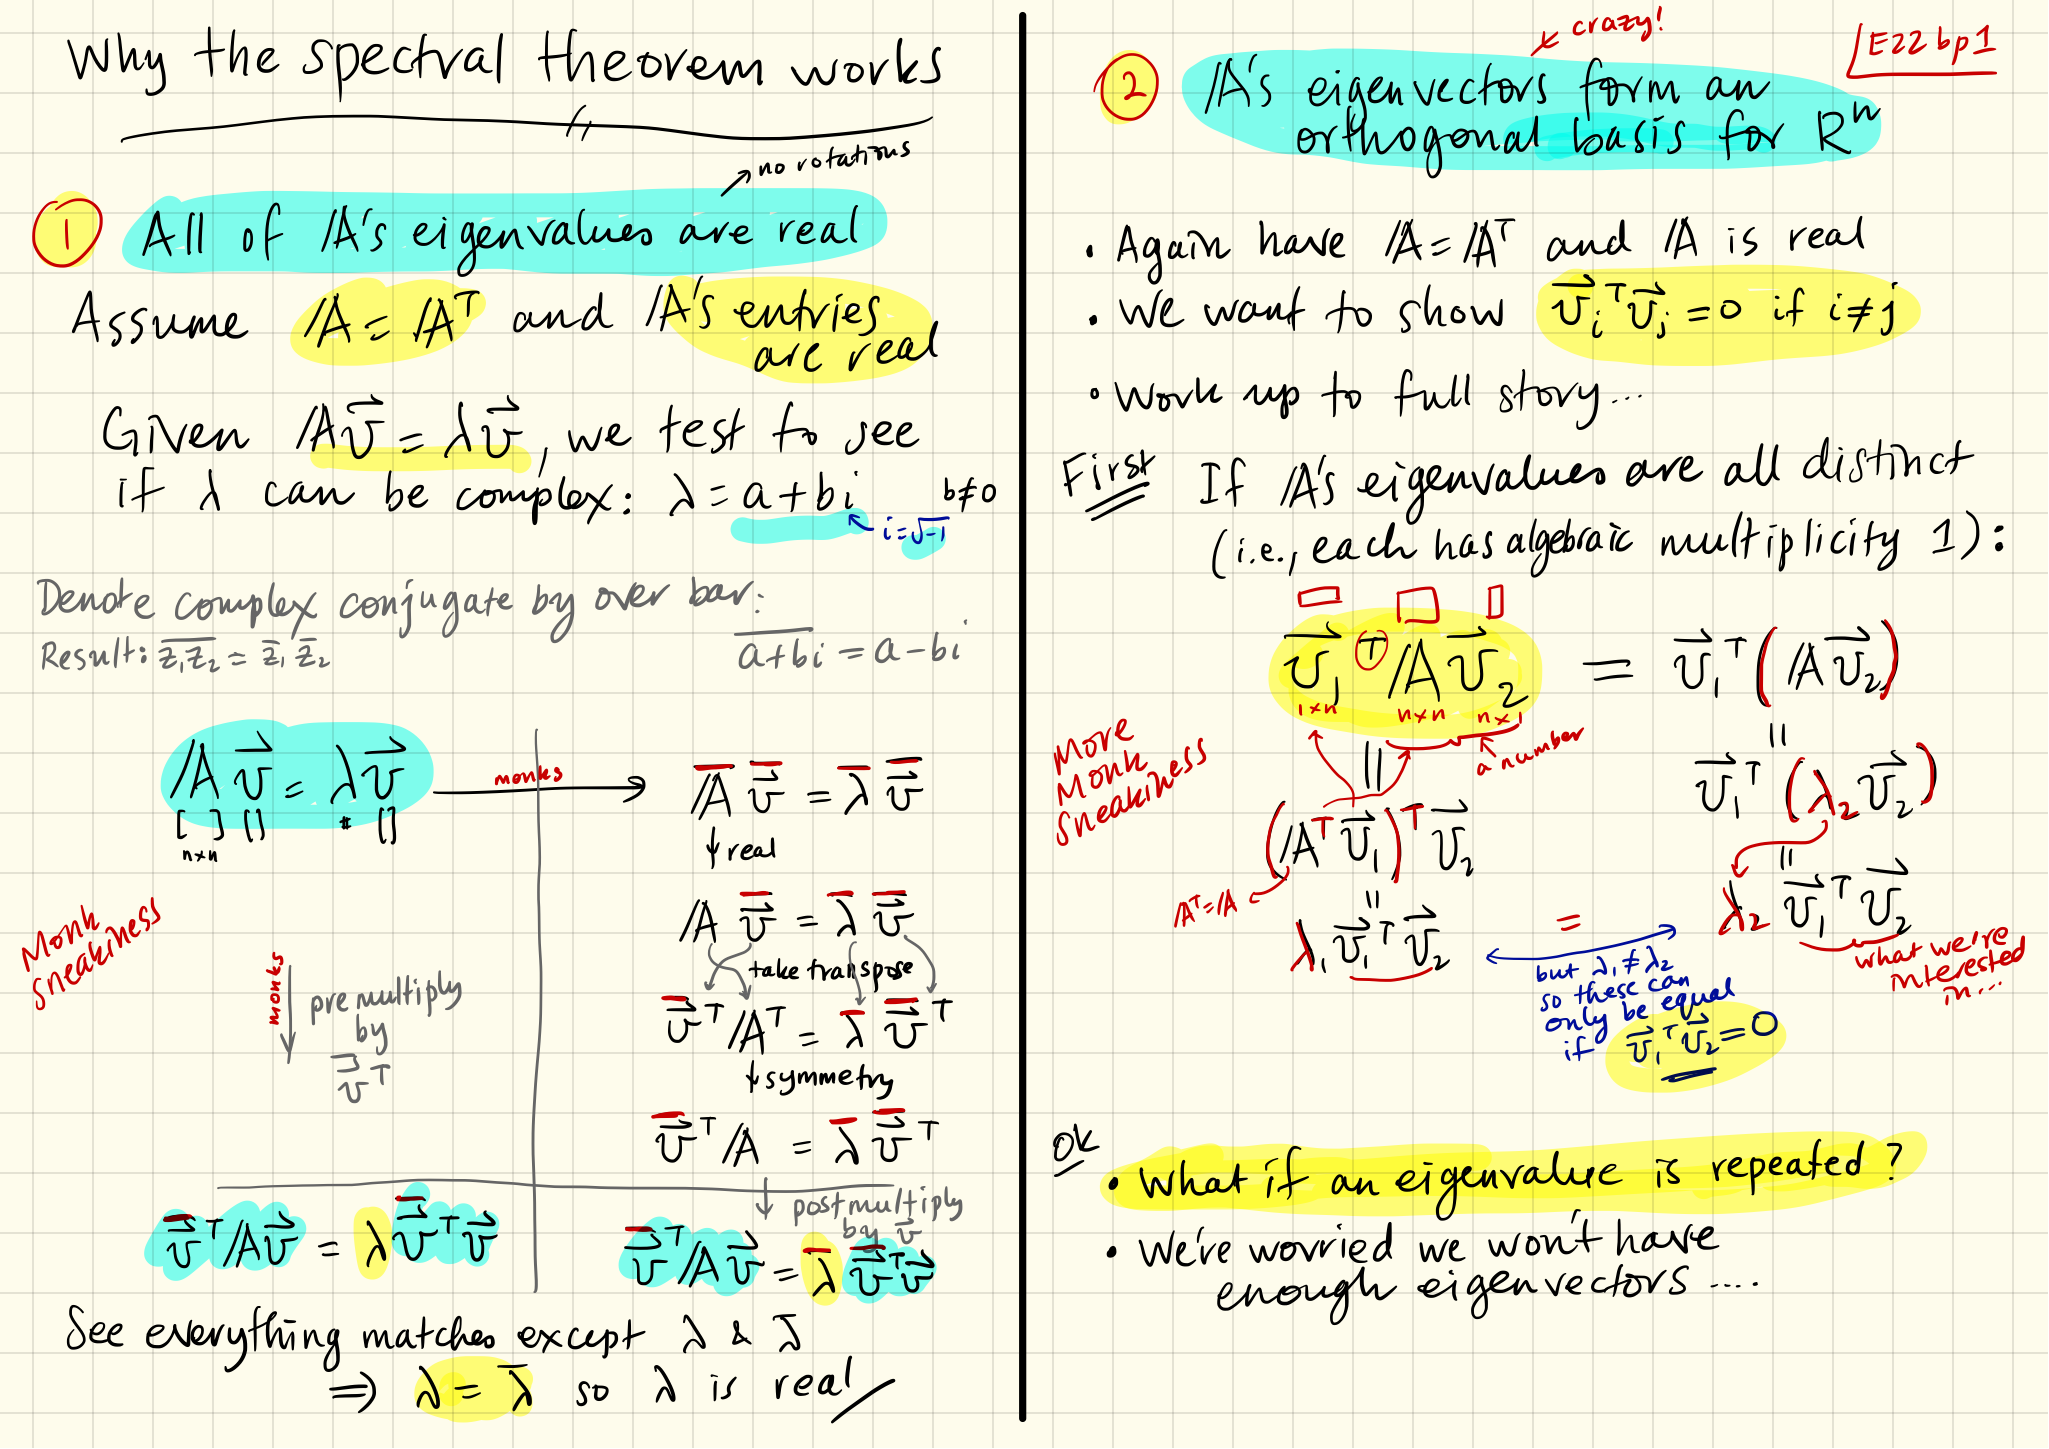 Why the spectral theorem works
no rotations
1 All of A's eigenvalues are real
Assume A = Aᵀ and A's entries
are real
Given Av⃗ = λv⃗, we test to see
if λ can be complex: λ = a + bi b≠0
i = √-1
Denote complex conjugate by over bar:
Result: \overline{z₁z₂} = z̄₁ z̄₂ \overline{a+bi} = a - bi
A v⃗ = λ v⃗ monks → Ā \bar{v⃗} = λ̄ \bar{v⃗}
[ ] [] # []
n×n
↓ real
A \bar{v⃗} = λ̄ \bar{v⃗}
take transpose
Monk
sneakiness
monks
premultiply
by
\bar{v⃗}ᵀ
\bar{v⃗}ᵀ Aᵀ = λ̄ \bar{v⃗}ᵀ
↓ symmetry
\bar{v⃗}ᵀ A = λ̄ \bar{v⃗}ᵀ
↓ postmultiply
by v⃗
\bar{v⃗}ᵀ A v⃗ = λ \bar{v⃗}ᵀ v⃗ \bar{v⃗}ᵀ A v⃗ = λ̄ \bar{v⃗}ᵀ v⃗
See everything matches except λ & λ̄
⇒ λ = λ̄ so λ is real
crazy!
E22 bp1
2 A's eigenvectors form an
orthogonal basis for Rⁿ
• Again have A = Aᵀ and A is real
• We want to show v⃗ᵢᵀ v⃗ⱼ = 0 if i≠j
• Work up to full story...
First If A's eigenvalues are all distinct
(i.e., each has algebraic multiplicity 1):
v⃗₁ᵀ A v⃗₂ = v⃗₁ᵀ (A v⃗₂)
1×n n×n n×1
a number
More
Monk
sneakiness
|| ||
v⃗₁ᵀ (λ₂ v⃗₂)
(Aᵀ v⃗₁)ᵀ v⃗₂
Aᵀ = A
|| ||
λ₁ v⃗₁ᵀ v⃗₂ = λ₂ v⃗₁ᵀ v⃗₂
what we're
interested
in...
but λ₁ ≠ λ₂
so these can
only be equal
if v⃗₁ᵀ v⃗₂ = 0
OK
• What if an eigenvalue is repeated?
• We're worried we won't have
enough eigenvectors ....